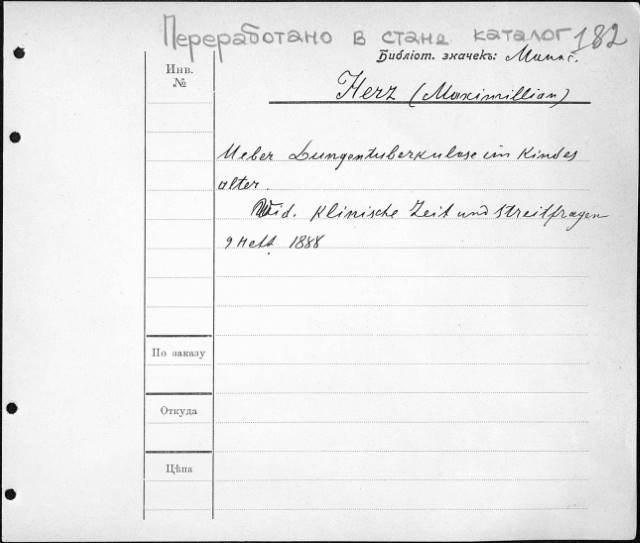 Переработано в стан. каталог 182
Библіот. значекъ:
Инв.
№
Herz (Maximillian)
Ueber Lungentuberkulose im Kindes
alter.
Vid. Klinische Zeit und Streitfragen
9 Heft 1888
По заказу
Откуда
Цѣна